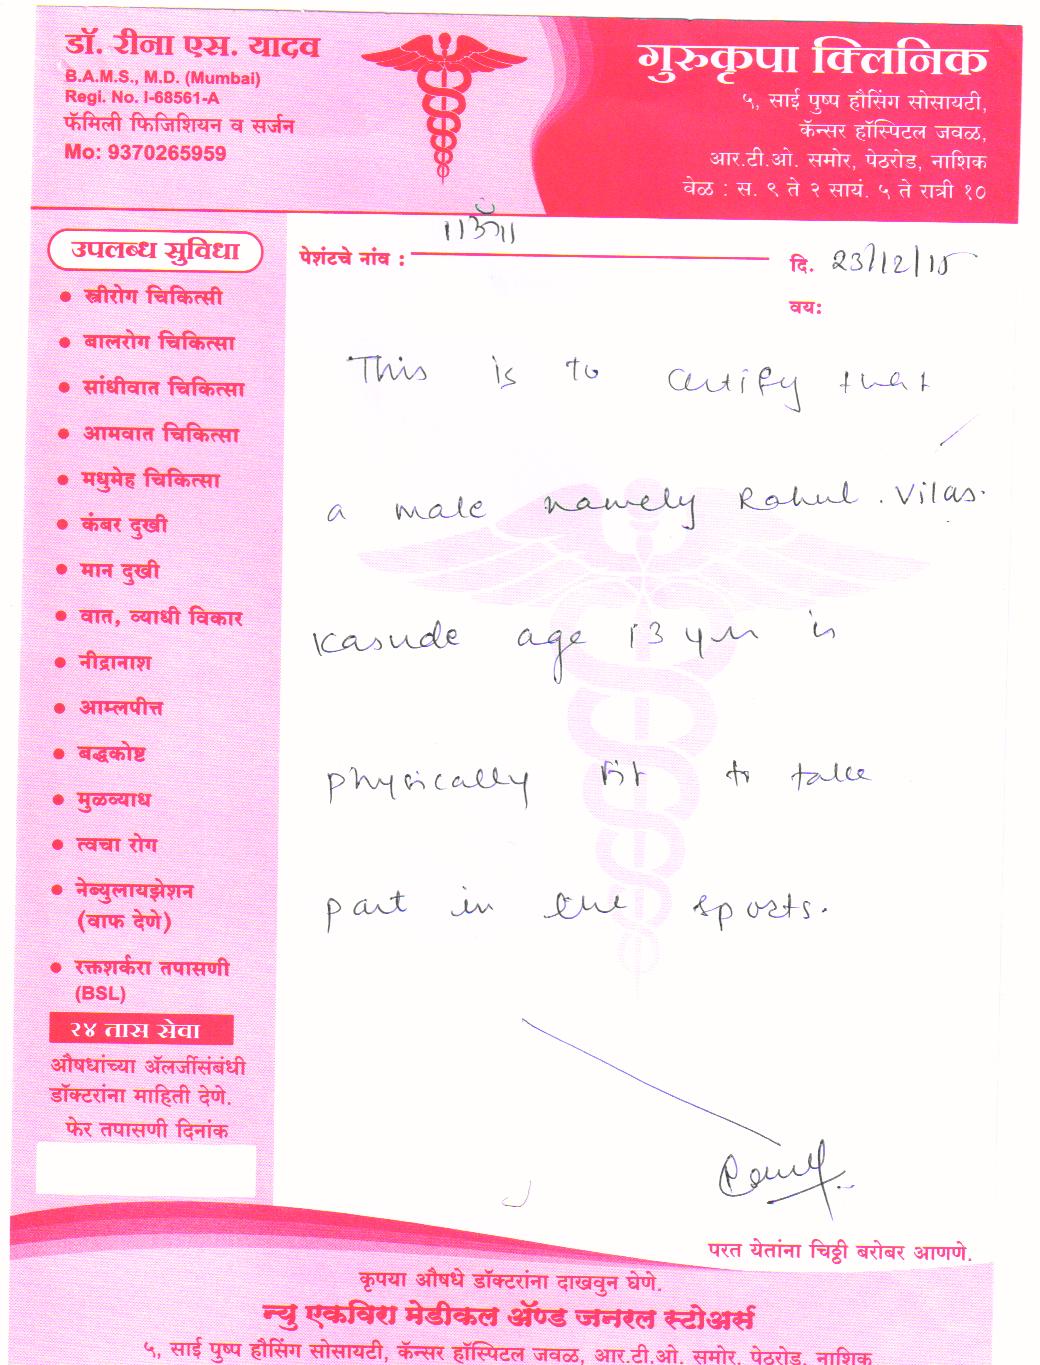 डॉ. रीना एस. यादव
B.A.M.S., M.D. (Mumbai)
Regi. No. I-68561-A
फॅमिली फिजिशियन व सर्जन
Mo: 9370265959
गुरुकृपा क्लिनिक
५, साई पुष्प हौसिंग सोसायटी,
कॅन्सर हॉस्पिटल जवळ,
आर.टी.ओ. समोर, पेठरोड, नाशिक
वेळ : स. ९ ते २ सायं. ५ ते रात्री १०
॥ॐ॥
पेशंटचे नांव :
दि. 23/12/15
वयः
उपलब्ध सुविधा
• स्त्रीरोग चिकित्सी
• बालरोग चिकित्सा
• सांधीवात चिकित्सा
• आमवात चिकित्सा
• मधुमेह चिकित्सा
• कंबर दुखी
• मान दुखी
• वात, व्याधी विकार
• नीद्रानाश
• आम्लपीत्त
• बद्धकोष्ट
• मुळव्याध
• त्वचा रोग
• नेब्युलायझेशन
(वाफ देणे)
• रक्तशर्करा तपासणी
(BSL)
२४ तास सेवा
औषधांच्या ॲलर्जीसंबंधी
डॉक्टरांना माहिती देणे.
फेर तपासणी दिनांक
This is to certify that
a male namely Rahul . Vilas.
Kasude age 13 yrs is
physically fit to take
part in the sports.
परत येतांना चिठ्ठी बरोबर आणणे.
कृपया औषधे डॉक्टरांना दाखवुन घेणे.
न्यु एकविरा मेडीकल ॲण्ड जनरल स्टोअर्स
५, साई पुष्प हौसिंग सोसायटी, कॅन्सर हॉस्पिटल जवळ, आर.टी.ओ. समोर, पेठरोड, नाशिक